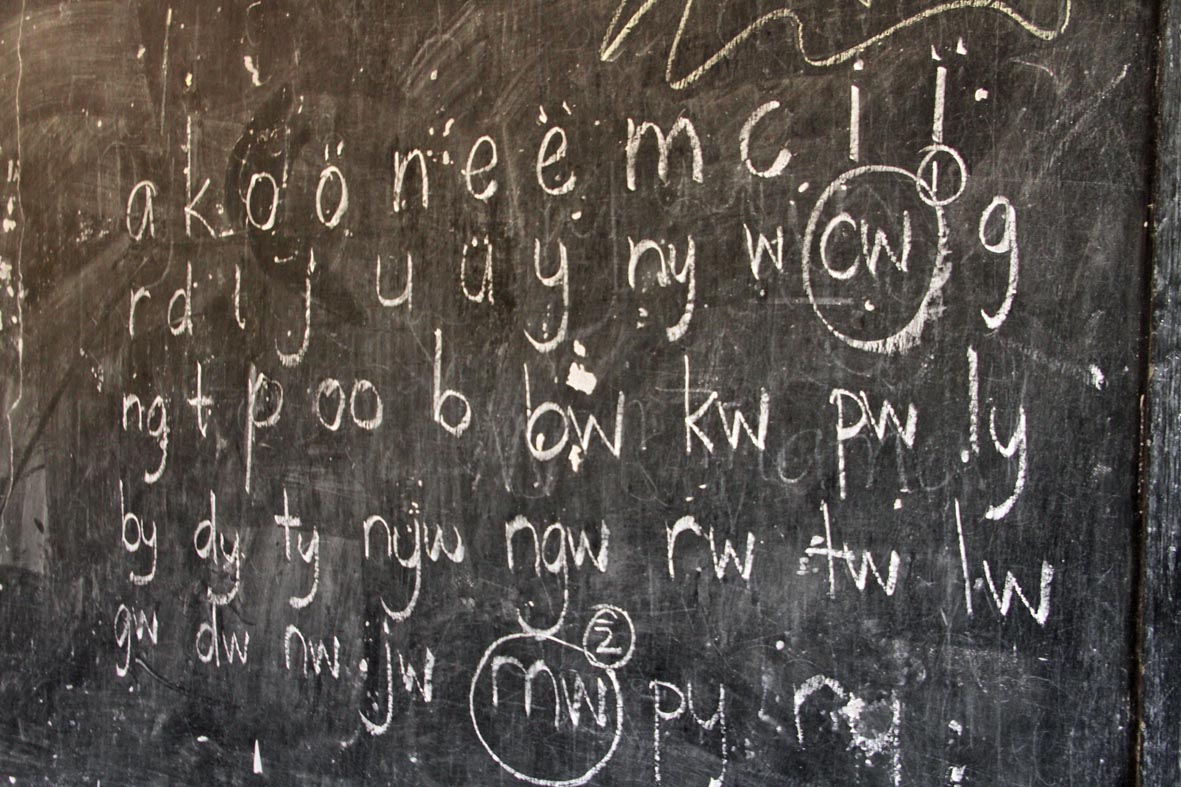 a k o ö n e ë m c i ï
r d l j u ü y ny w cw 1 g
ng t p oo b bw kw pw ly
by dy ty nyw ngw rw tw lw
gw dw nw jw mw 2 py